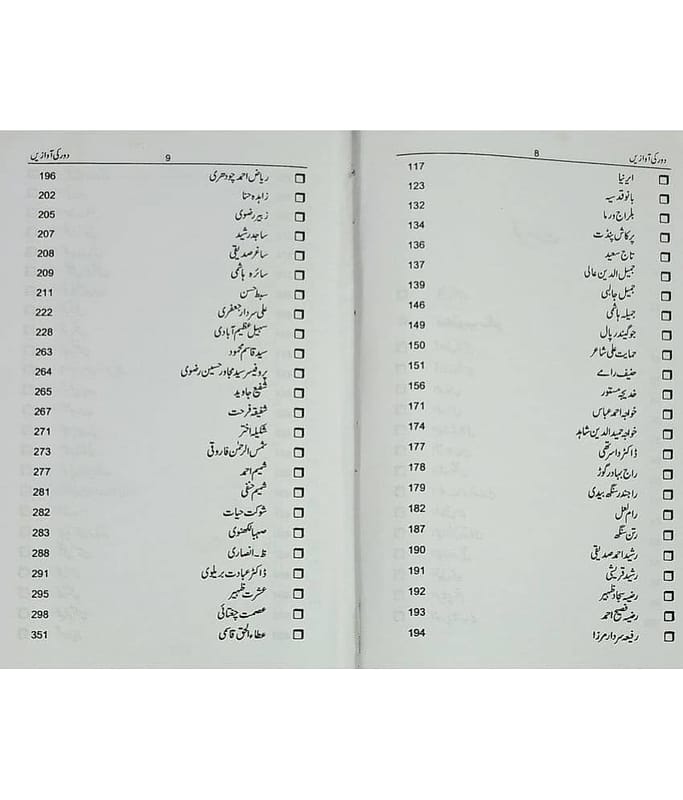 دور کی آوازیں 8
ایرنیا 117
بانو قدسیہ 123
بلراج ورما 132
پرکاش پنڈت 134
تاج سعید 136
جمیل الدین عالی 137
جمیل جالبی 139
جمیلہ ہاشمی 146
جوگیندر پال 149
حمایت علی شاعر 150
حنیف رامے 151
خدیجہ مستور 156
خواجہ احمد عباس 171
خواجہ حمید الدین شاہد 174
ڈاکٹر داسرتھی 177
راج بہادر گوڑ 178
راجندر سنگھ بیدی 179
رام لعل 182
رتن سنگھ 187
رشید احمد صدیقی 190
رشید قریشی 191
رضیہ سجاد ظہیر 192
رضیہ فصیح احمد 193
رفیعہ سردار مرزا 194
دور کی آوازیں 9
ریاض احمد چودھری 196
زاہدہ حنا 202
زبیر رضوی 205
ساجد رشید 207
ساغر صدیقی 208
سائرہ ہاشمی 209
سبط حسن 211
علی سردار جعفری 222
سہیل عظیم آبادی 228
سید قاسم محمود 263
پروفیسر سید مجاور حسین رضوی 264
شفیع جاوید 265
شفیقہ فرحت 267
شکیلہ اختر 271
شمس الرحمٰن فاروقی 273
شمیم احمد 277
شمیم حنفی 281
شوکت حیات 282
صہبا لکھنوی 283
ظ۔ انصاری 288
ڈاکٹر عبادت بریلوی 291
عشرت ظہیر 295
عصمت چغتائی 298
عطاء الحق قاسمی 351